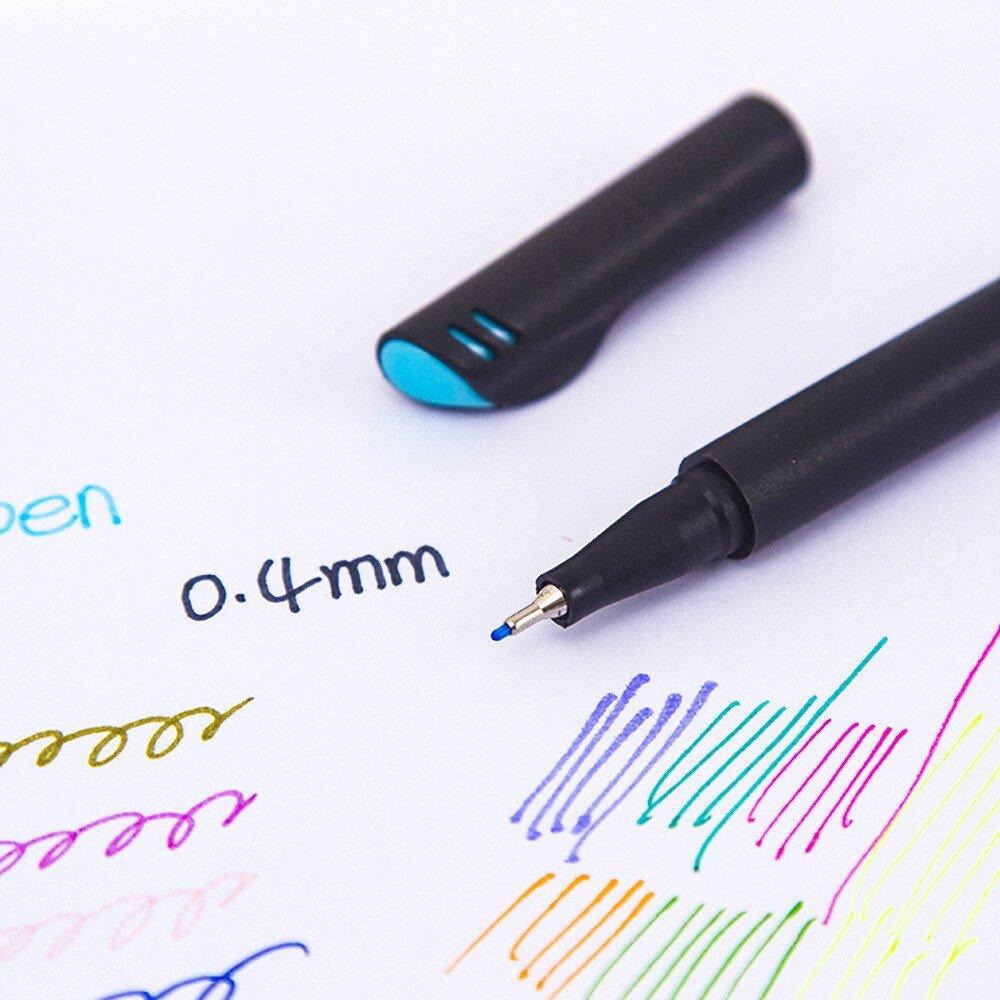 pen
0.4mm